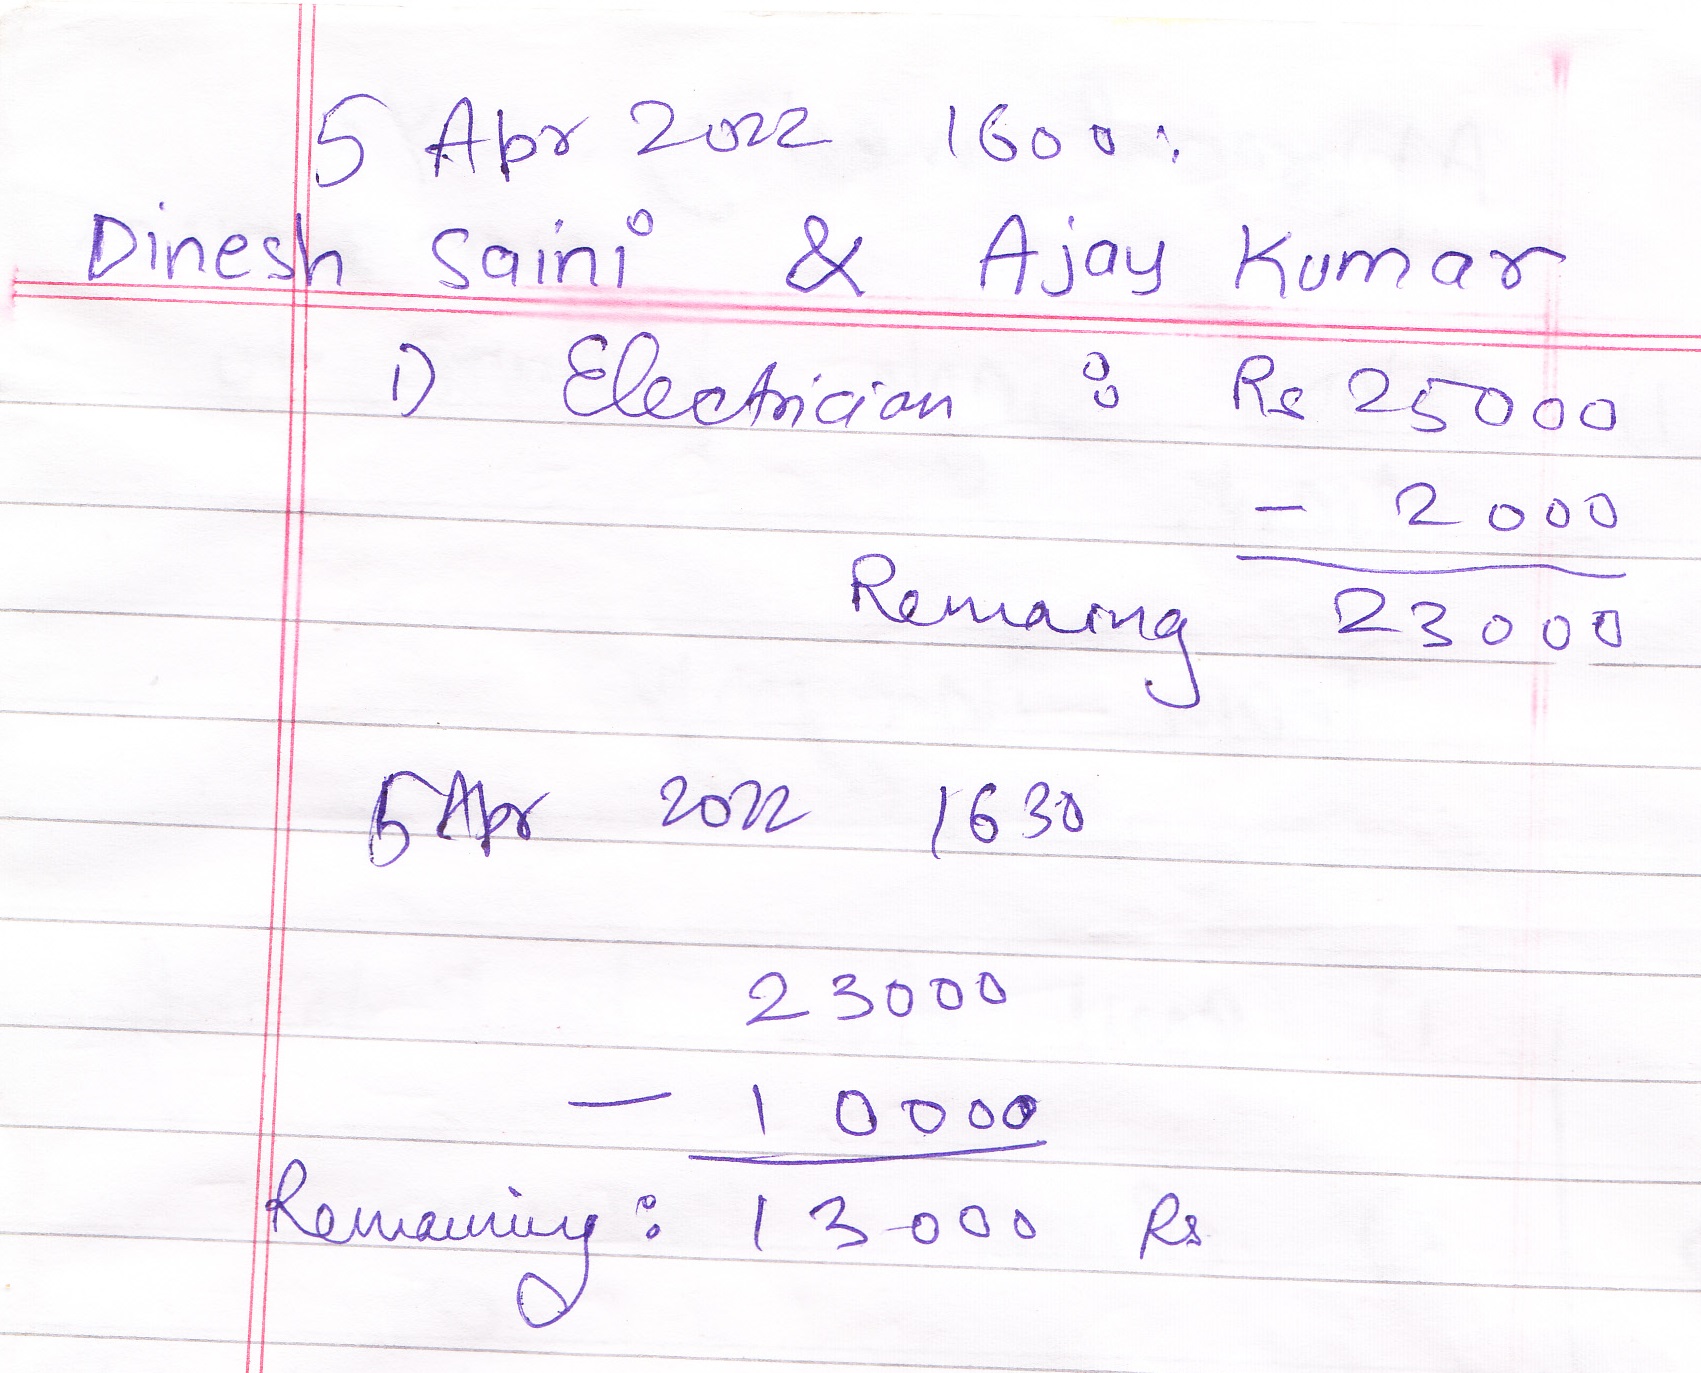 5 Apr 2022 1600:
Dinesh Saini & Ajay Kumar
1) Electrician : Rs 25000
- 2000
Remaing 23000
5 Apr 2022 1630
23000
- 10000
Remaining: 13000 Rs